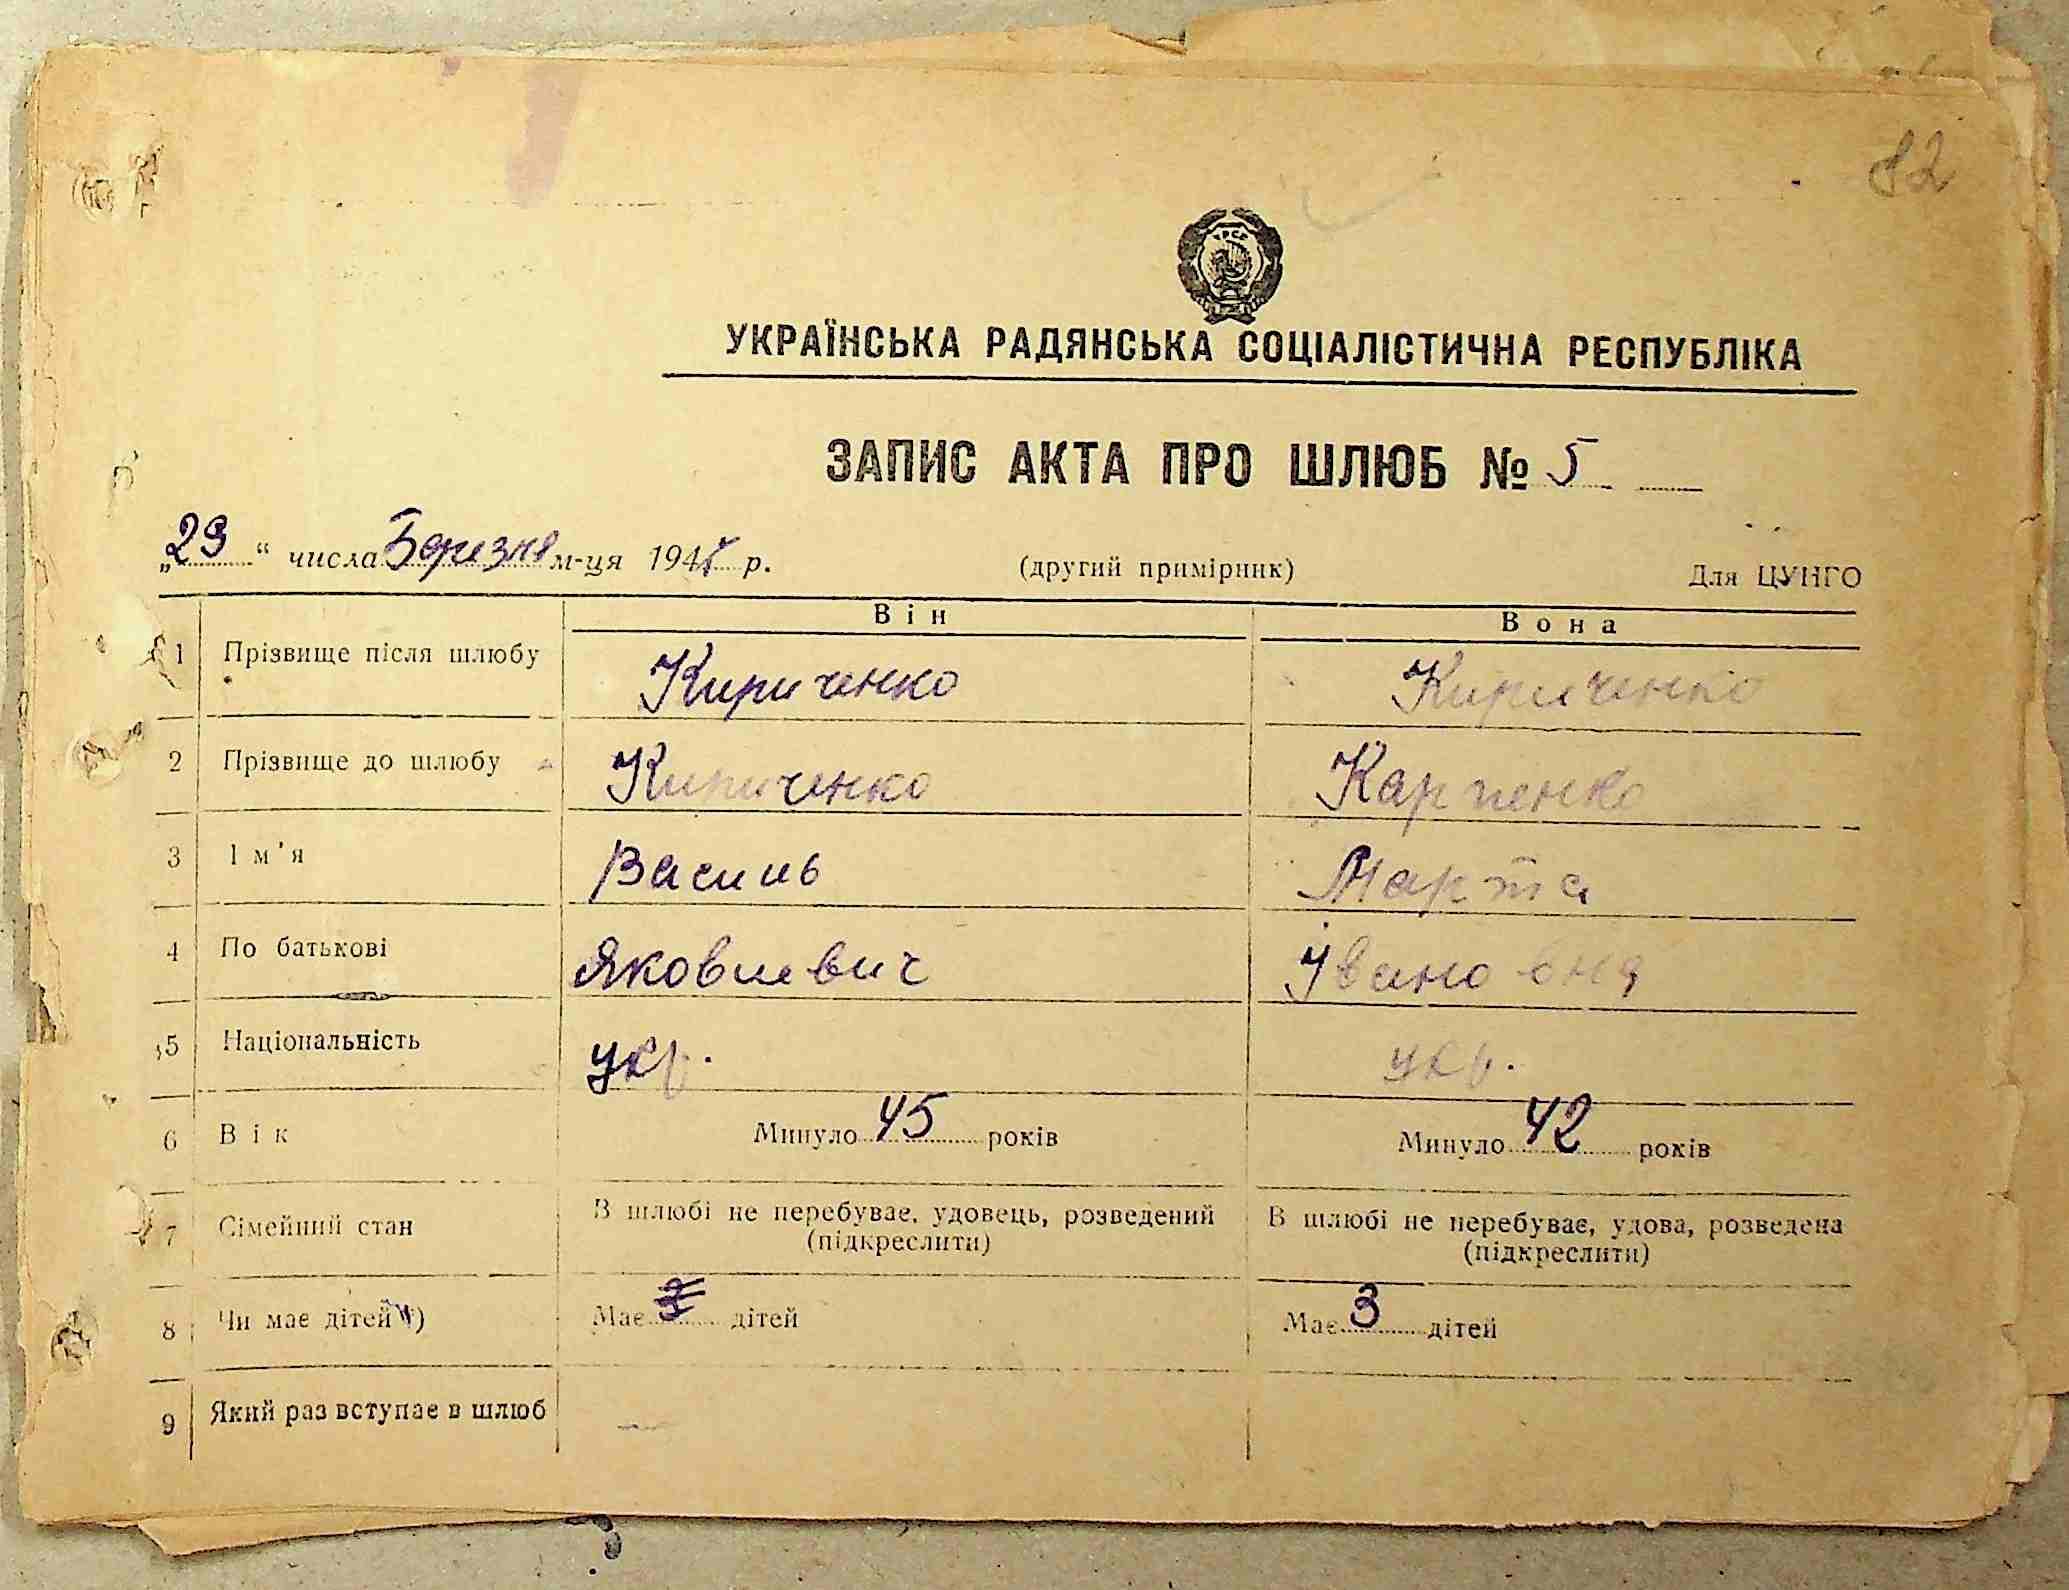 УРСР
УКРАЇНСЬКА РАДЯНСЬКА СОЦІАЛІСТИЧНА РЕСПУБЛІКА
ЗАПИС АКТА ПРО ШЛЮБ № 5
„23“ числа Березня м-ця 194 р. (другий примірник) Для ЦУНГО
Він Вона
1 Прізвище після шлюбу Кириченко Кириченко
2 Прізвище до шлюбу Кириченко Карпенко
3 Ім'я Василь Марта
4 По батькові Яковлевич Ивановня
5 Національність укр. укр.
6 Вік Минуло 45 років Минуло 42 років
7 Сімейний стан В шлюбі не перебуває, удовець, розведений (підкреслити) В шлюбі не перебуває, удова, розведена (підкреслити)
8 Чи має дітей Має дітей Має 3 дітей
9 Який раз вступає в шлюб —